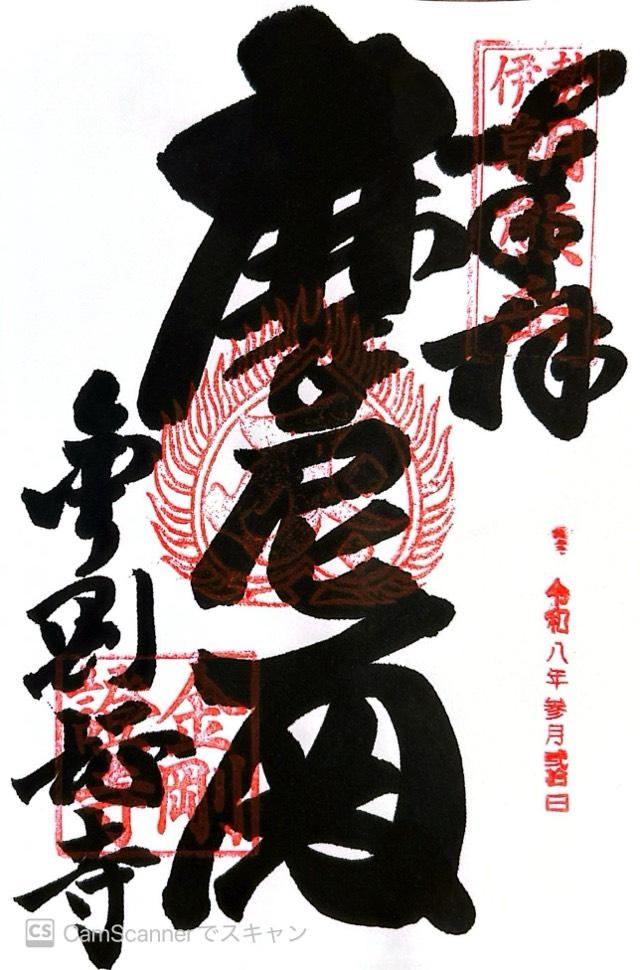 奉拝
伊勢朝熊岳
令和八年参月弐拾日
摩尼殿
金剛證寺
金剛證寺
CS CamScannerでスキャン